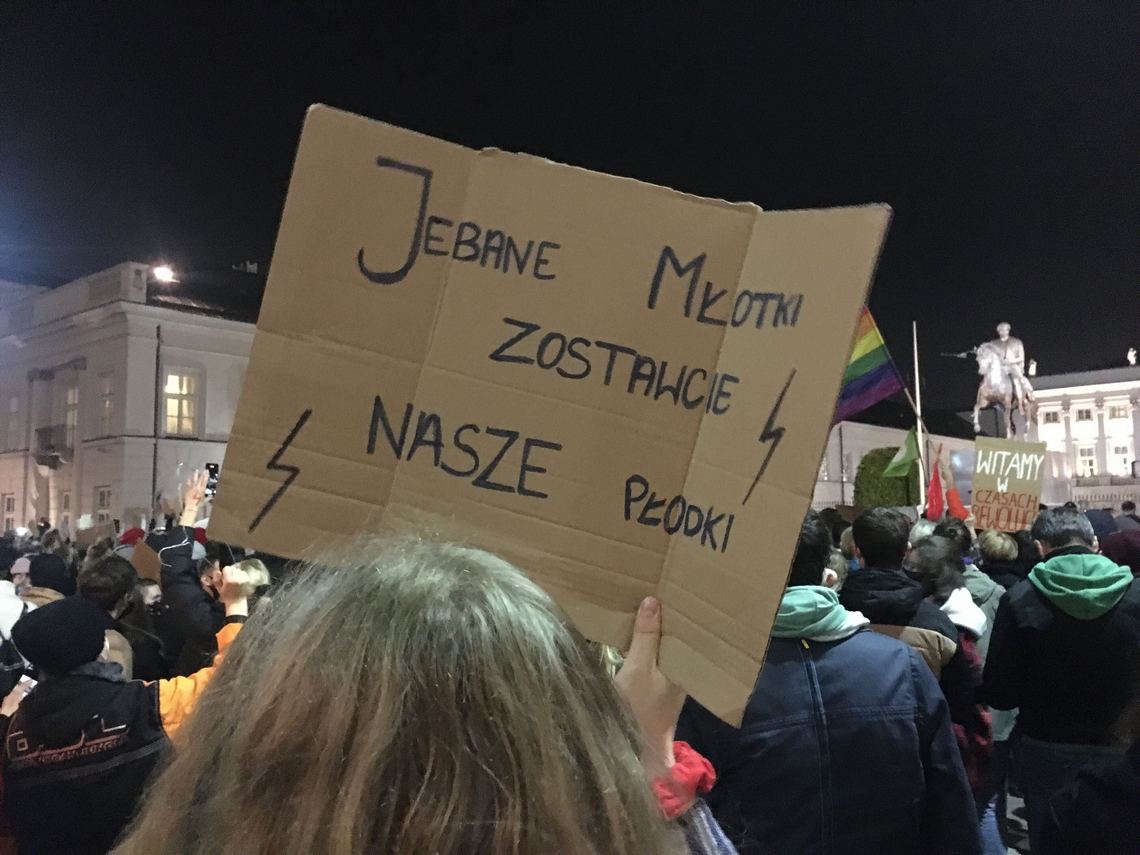 JEBANE MŁOTKI
ZOSTAWCIE
NASZE PŁODKI
WITAMY
W
CZASACH
REWOLUCJI